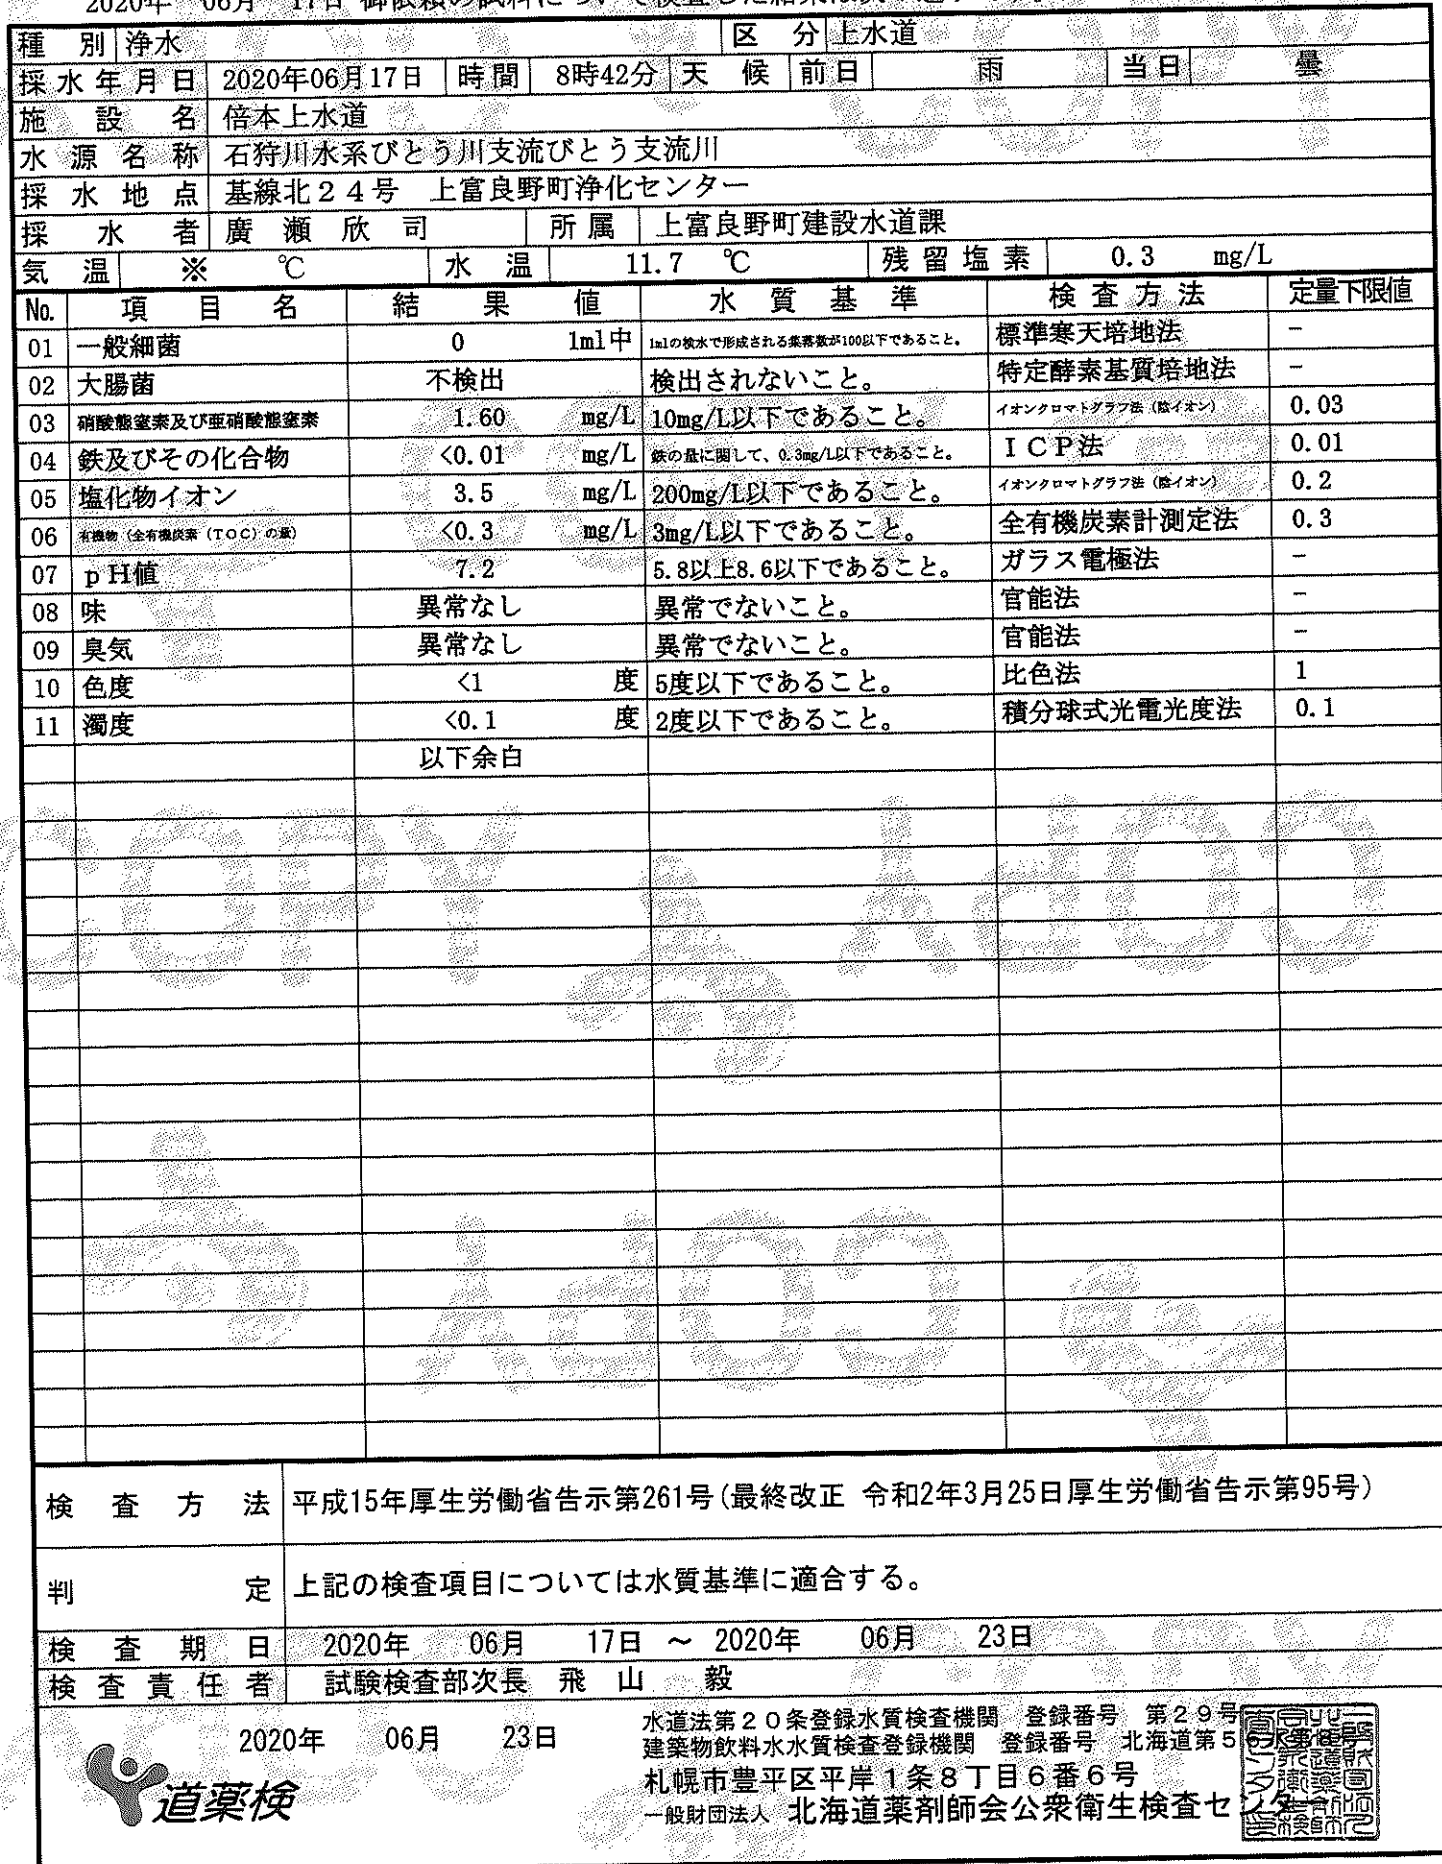 2020年 06月 17日 御依頼の試料について検査した結果は次の
種別 浄水 区分 上水道
採水年月日 2020年06月17日 時間 8時42分 天候 前日 雨 当日 曇
施設名 倍本上水道
水源名称 石狩川水系びとう川支流びとう支流川
採水地点 基線北24号 上富良野町浄化センター
採水者 廣瀬欣司 所属 上富良野町建設水道課
気温 ※ ℃ 水温 11.7 ℃ 残留塩素 0.3 mg/L
No. 項目名 結果値 水質基準 検査方法 定量下限値
01 一般細菌 0 1ml中 1mlの検水で形成される集落数が100以下であること。 標準寒天培地法 -
02 大腸菌 不検出 検出されないこと。 特定酵素基質培地法 -
03 硝酸態窒素及び亜硝酸態窒素 1.60 mg/L 10mg/L以下であること。 イオンクロマトグラフ法（陰イオン） 0.03
04 鉄及びその化合物 <0.01 mg/L 鉄の量に関して、0.3mg/L以下であること。 ICP法 0.01
05 塩化物イオン 3.5 mg/L 200mg/L以下であること。 イオンクロマトグラフ法（陰イオン） 0.2
06 有機物（全有機炭素（TOC）の量） <0.3 mg/L 3mg/L以下であること。 全有機炭素計測定法 0.3
07 pH値 7.2 5.8以上8.6以下であること。 ガラス電極法 -
08 味 異常なし 異常でないこと。 官能法 -
09 臭気 異常なし 異常でないこと。 官能法 -
10 色度 <1 度 5度以下であること。 比色法 1
11 濁度 <0.1 度 2度以下であること。 積分球式光電光度法 0.1
以下余白
COPY COPY
COPY
検査方法 平成15年厚生労働省告示第261号(最終改正 令和2年3月25日厚生労働省告示第95号)
判定 上記の検査項目については水質基準に適合する。
検査期日 2020年 06月 17日 ～ 2020年 06月 23日
検査責任者 試験検査部次長 飛山 毅
2020年 06月 23日
道薬検
水道法第20条登録水質検査機関 登録番号 第29号
建築物飲料水水質検査登録機関 登録番号 北海道第5
札幌市豊平区平岸1条8丁目6番6号
一般財団法人 北海道薬剤師会公衆衛生検査センター